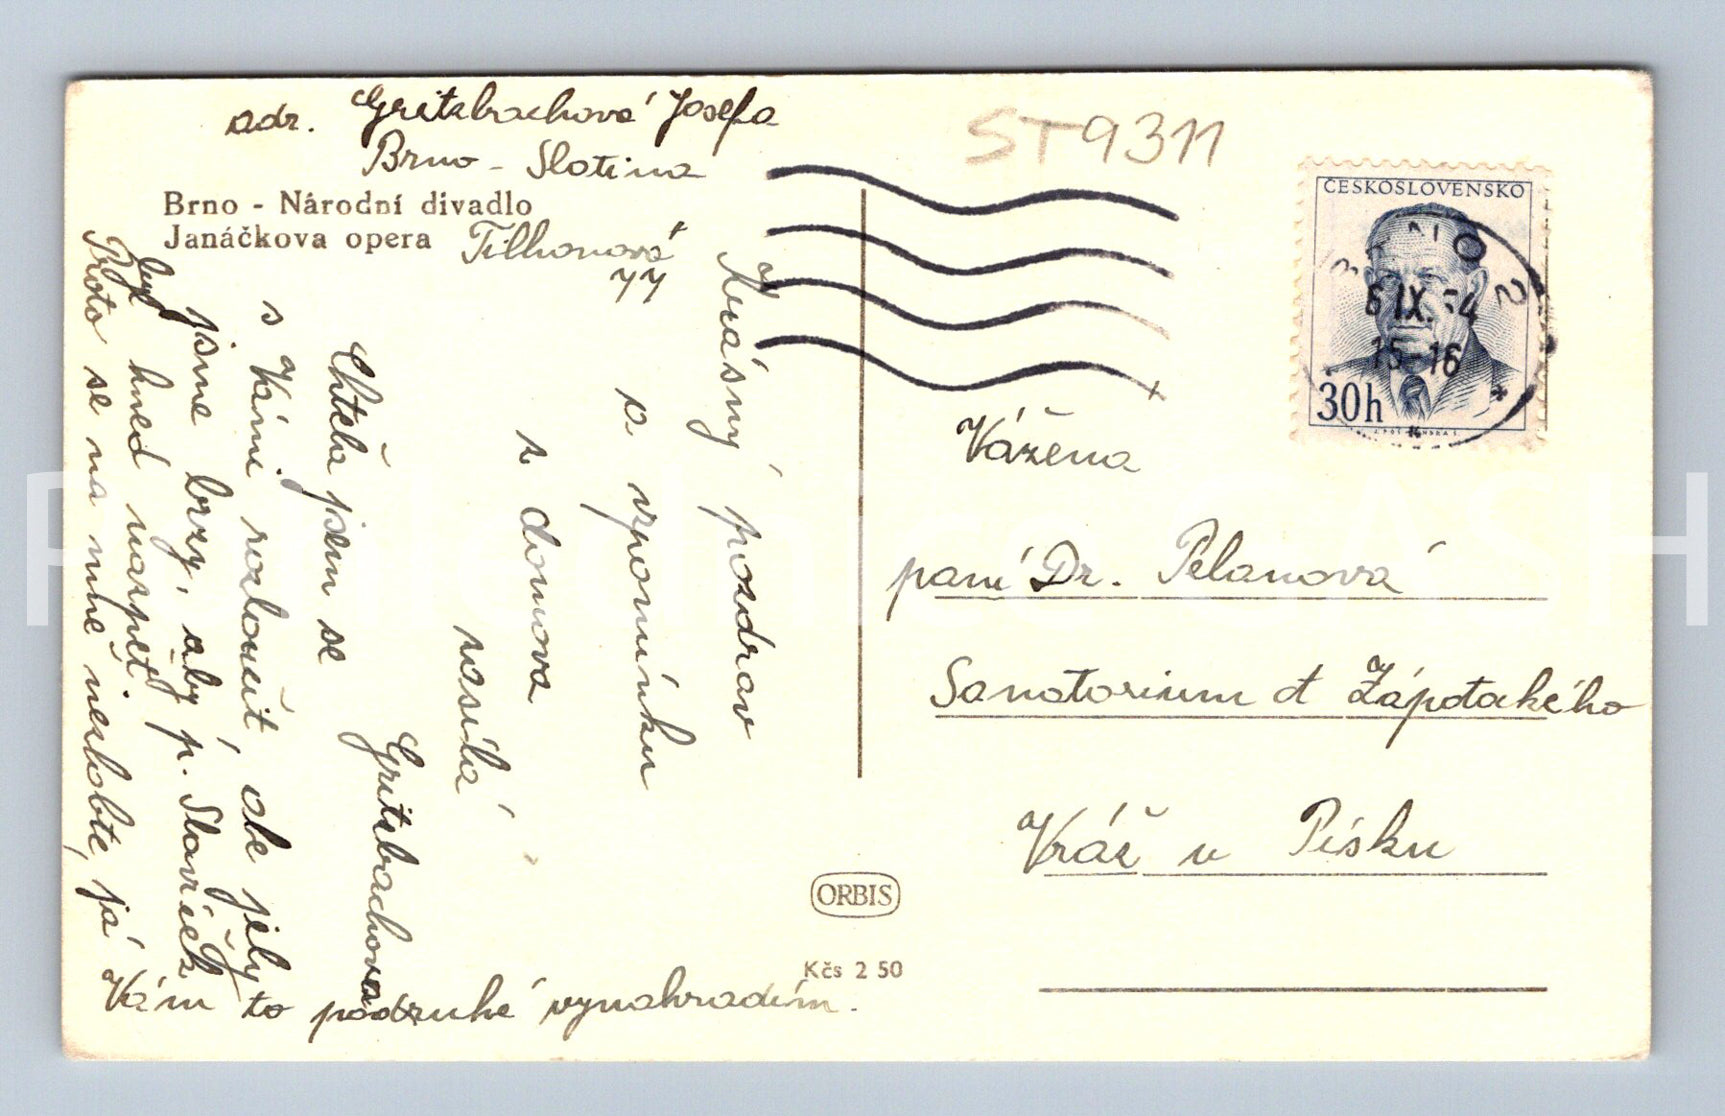 adr. Gritzbachová Josefa
Brno - Slatina
Brno - Národní divadlo
Janáčkova opera
Tilhonová
77
Krásný pozdrav
a vzpomínku
z domova
zasílá
Gritzbachova
Chtěla jsem se
s Vámi rozloučit, ale jely
jsme brzy, aby p. Slavíček
byl hned nazpět.
Proto se na mne nezlobte, já
Vám to podruhé vynahradím.
ST9311
ČESKOSLOVENSKO
30h
BRNO 2
6.IX.54
15-16
Vážená
paní Dr. Pelanová
Sanatorium A Zápotokého
Vráž u Písku
ORBIS
Kčs 2 50
Pohlednice CASH